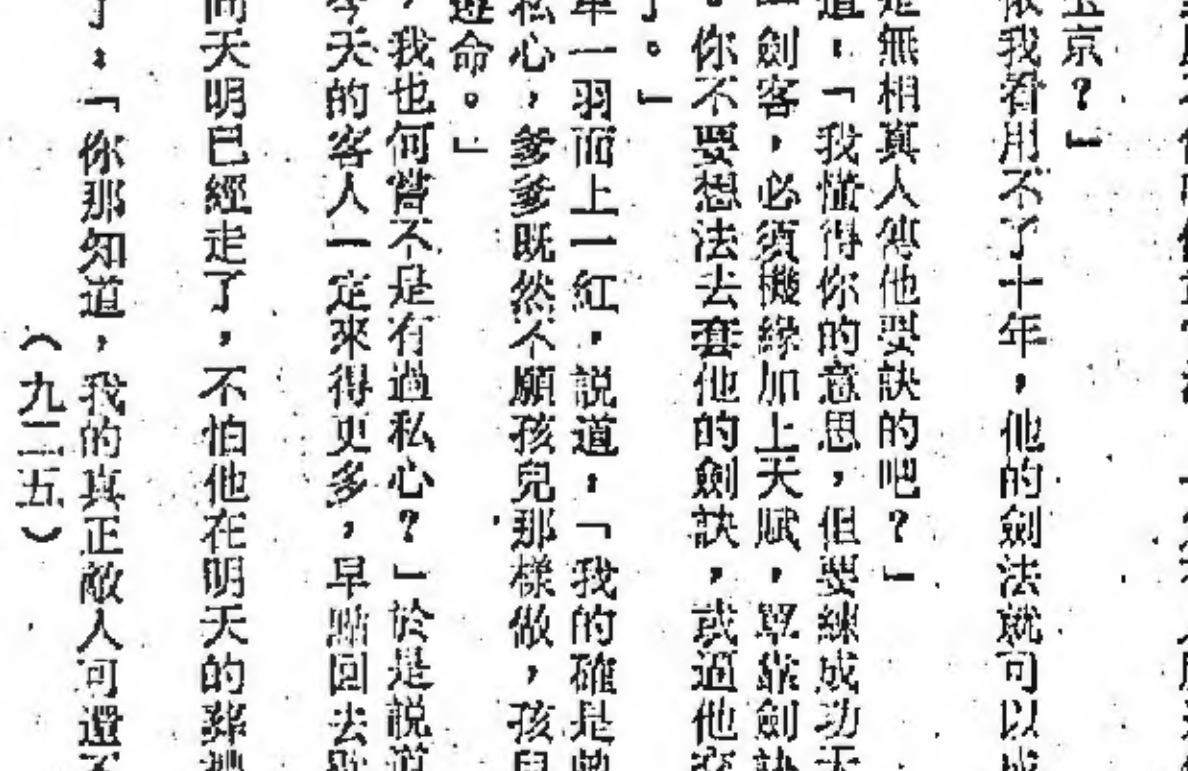 玉京？」
依我看用不了十年，他的劍法就可以成
是無相真人傳他要訣的吧？」
道：「我懂得你的意思，但要練成功天
一劍客，必須機緣加上天賦，單靠劍訣
。你不要想法去套他的劍訣，或逼他交
了。」
單一羽面上一紅，說道：「我的確是曾
私心，爹爹既然不願孩兒那樣做，孩兒
遵命。」
，我也何嘗不是有過私心？」於是說道
今天的客人一定來得更多，早點回去歇
向天明已經走了，不怕他在明天的葬禮
了：「你那知道，我的真正敵人可還不
（九二五）